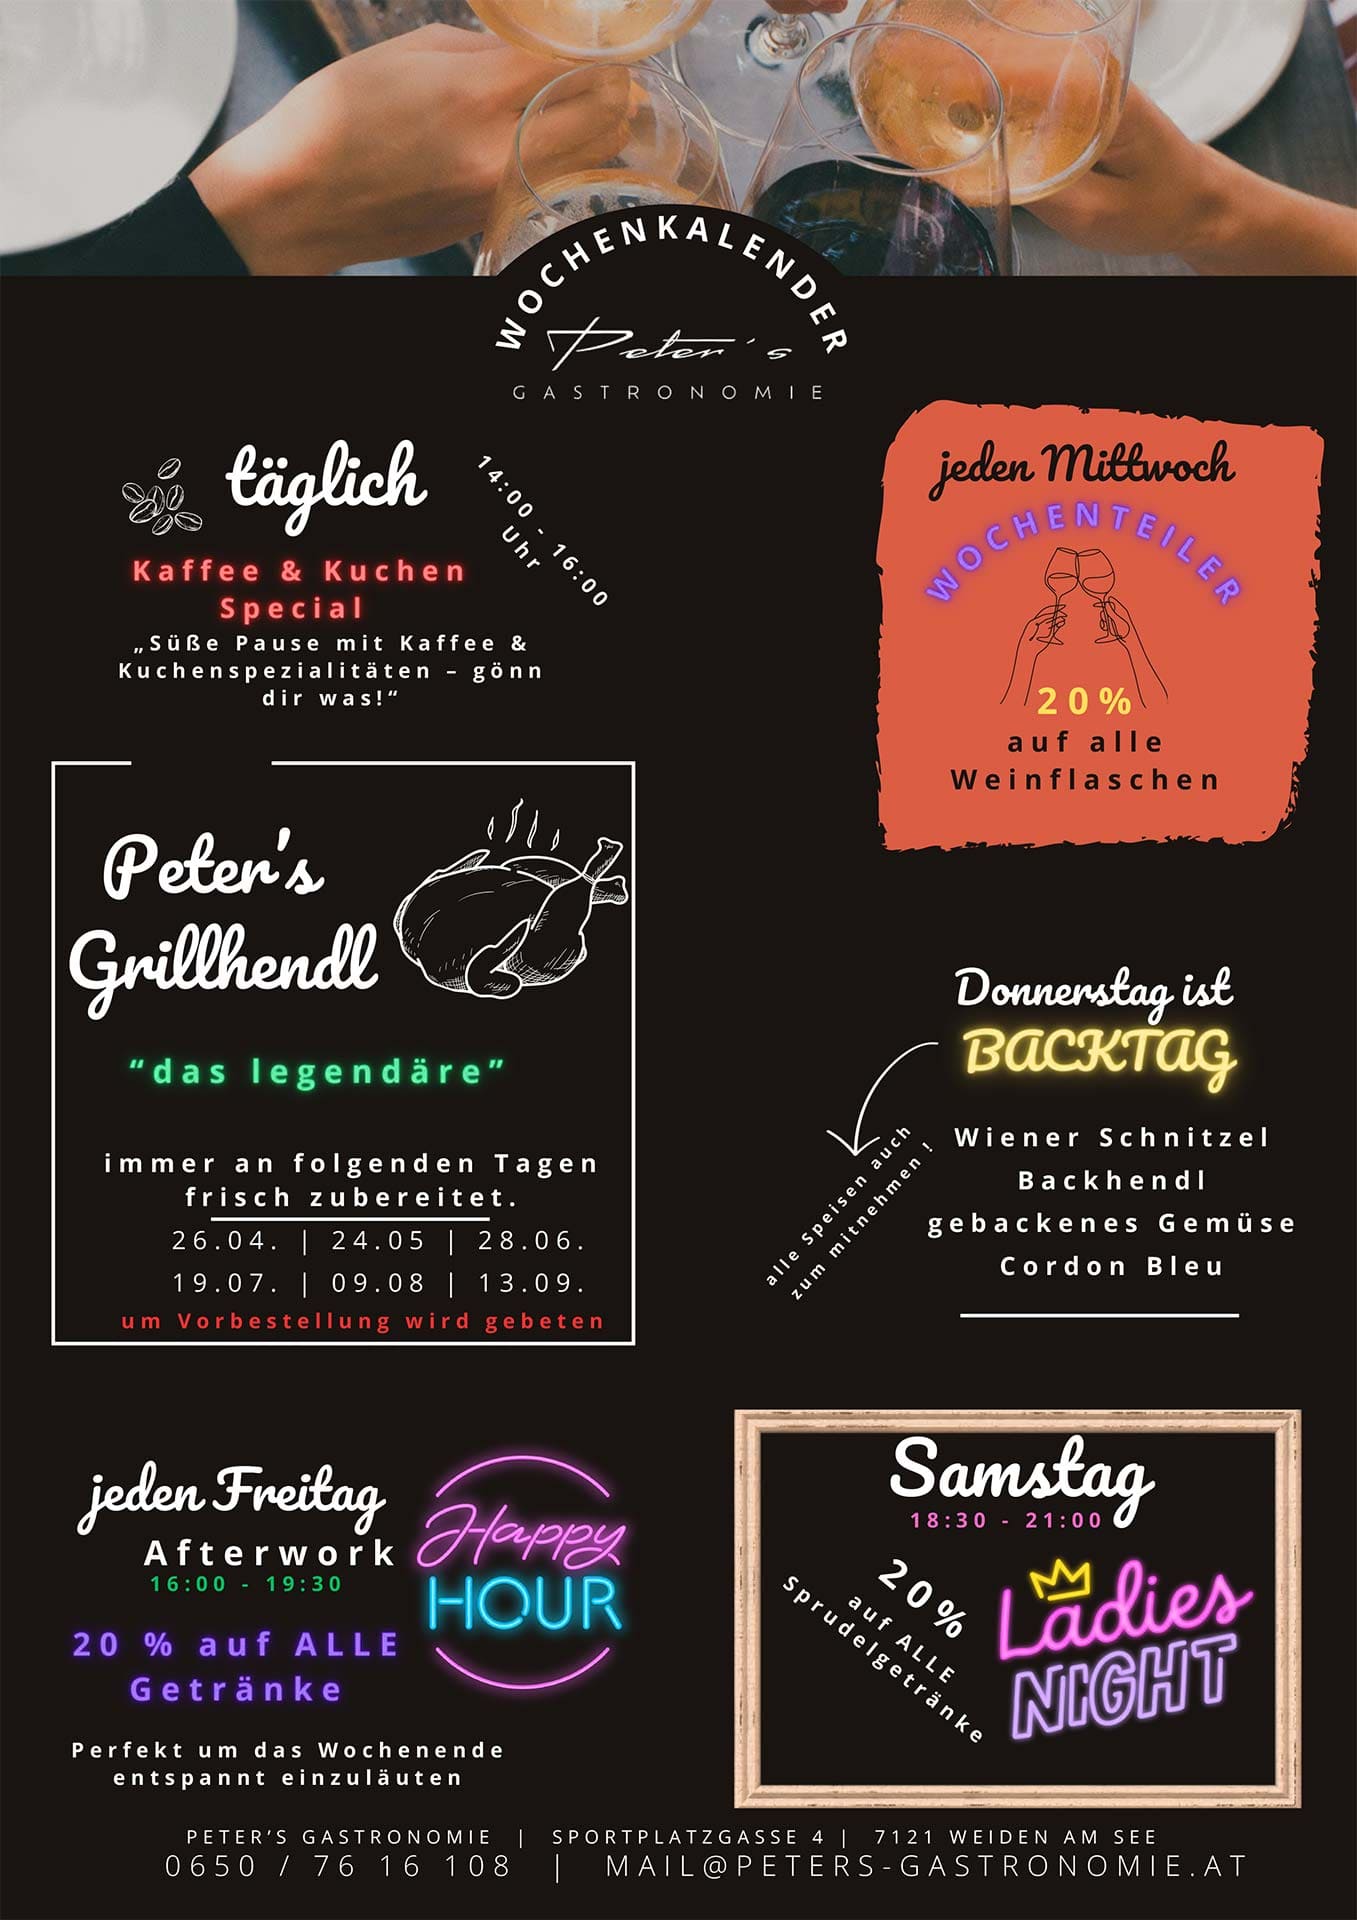 WOCHENKALENDER
Peter's
GASTRONOMIE
täglich
14:00 - 16:00
Uhr
Kaffee & Kuchen
Special
„Süße Pause mit Kaffee &
Kuchenspezialitäten – gönn
dir was!“
jeden Mittwoch
WOCHENTEILER
20%
auf alle
Weinflaschen
Peter's
Grillhendl
“das legendäre”
immer an folgenden Tagen
frisch zubereitet.
26.04. | 24.05 | 28.06.
19.07. | 09.08 | 13.09.
um Vorbestellung wird gebeten
Donnerstag ist
BACKTAG
alle Speisen auch
zum mitnehmen !
Wiener Schnitzel
Backhendl
gebackenes Gemüse
Cordon Bleu
jeden Freitag
Afterwork
16:00 - 19:30
Happy
HOUR
20 % auf ALLE
Getränke
Perfekt um das Wochenende
entspannt einzuläuten
Samstag
18:30 - 21:00
20%
auf ALLE
Sprudelgetränke
Ladies
NIGHT
PETER’S GASTRONOMIE | SPORTPLATZGASSE 4 | 7121 WEIDEN AM SEE
0650 / 76 16 108 | MAIL@PETERS-GASTRONOMIE.AT